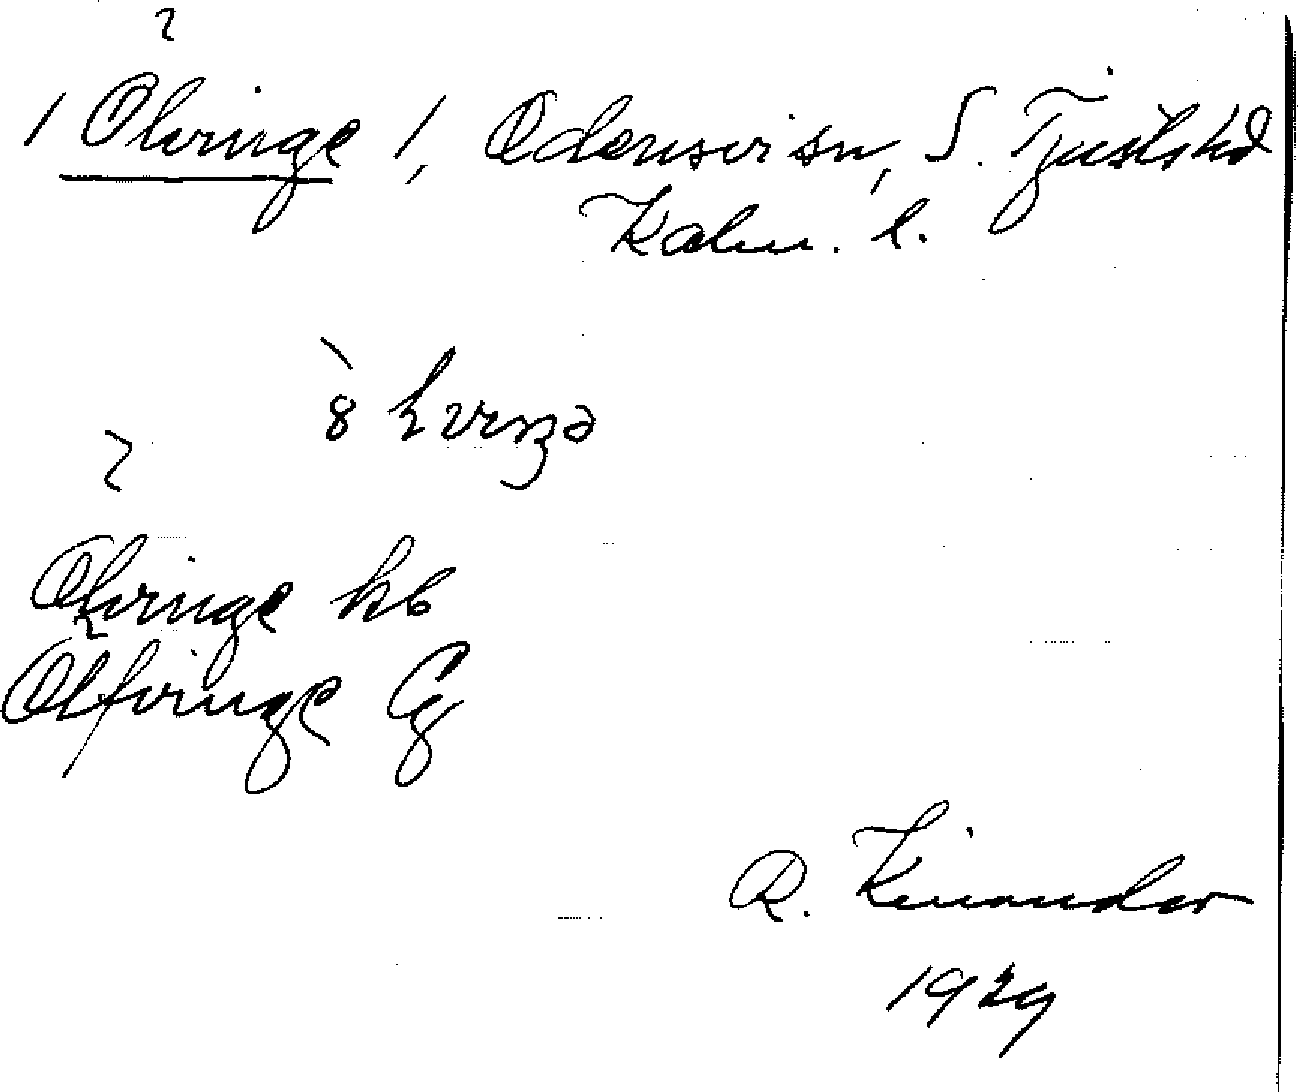 ?
/ Olvinge /, Odensvi sn, S. Tjusts hd
Kalm. l.
Olvinge kb
Olfvinge Cg
R. Kinander
1929